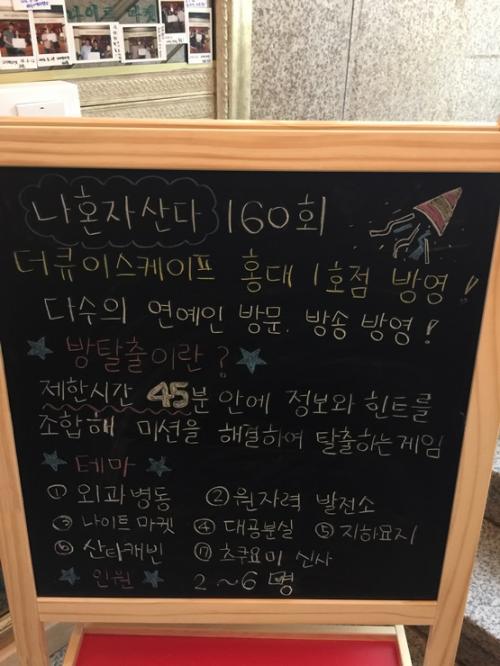 나이트 마켓
나혼자산다 160회
더큐이스케이프 홍대 1호점 방영!
다수의 연예인 방문. 방송 방영!
방탈출이란?
제한시간 45분 안에 정보와 힌트를
조합해 미션을 해결하여 탈출하는게임
테마
① 외과병동 ② 원자력 발전소
③ 나이트마켓 ④ 대공분실 ⑤ 지하묘지
⑥ 산타캐빈 ⑦ 츠쿠요미 신사
인원 2~6명